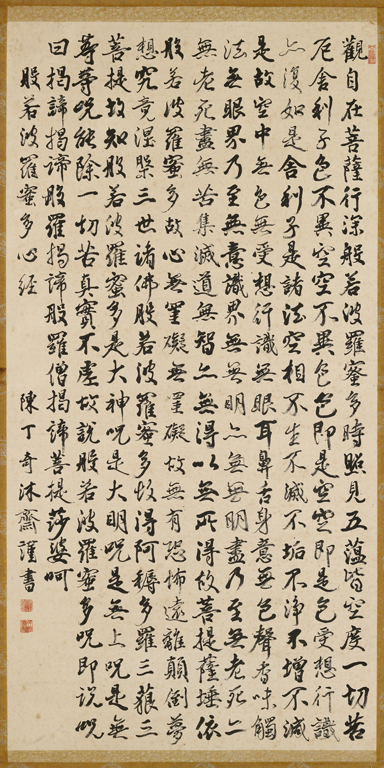 觀自在菩薩行深般若波羅蜜多時照見五蘊皆空度一切苦
厄舍利子色不異空空不異色色即是空空即是色受想行識
亦復如是舍利子是諸法空相不生不滅不垢不淨不增不減
是故空中無色無受想行識無眼耳鼻舌身意無色聲香味觸
法無眼界乃至無意識界無無明亦無無明盡乃至無老死亦
無老死盡無苦集滅道無智亦無得以無所得故菩提薩埵依
般若波羅蜜多故心無罣礙無罣礙故無有恐怖遠離顛倒夢
想究竟涅槃三世諸佛般若波羅蜜多故得阿耨多羅三藐三
菩提故知般若波羅蜜多是大神咒是大明咒是無上咒是無
等等咒能除一切苦真實不虛故說般若波羅蜜多咒即說咒
曰揭諦揭諦般羅揭諦般羅僧揭諦菩提莎婆呵
般若波羅蜜多心經 陳丁奇沐齋謹書